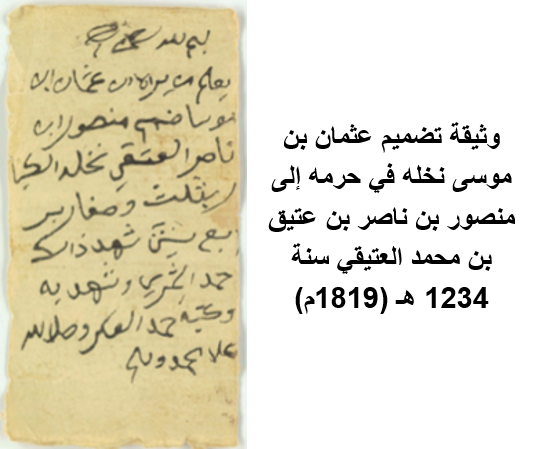 بسم لله
يعلم من يراه ان عثمان ابن
موسا ضمم منصور ابن
ناصر العتيقي نخله
بثلث وصفا
اربع سنين شهد ذالك
حمد الشري وشهد به
وكتبه حمد العكر وصلا لله
علا محمد وسلم
وثيقة تضميم عثمان بن
موسى نخله في حرمه إلى
منصور بن ناصر بن عتيق
بن محمد العتيقي سنة
1234 هـ (1819م)